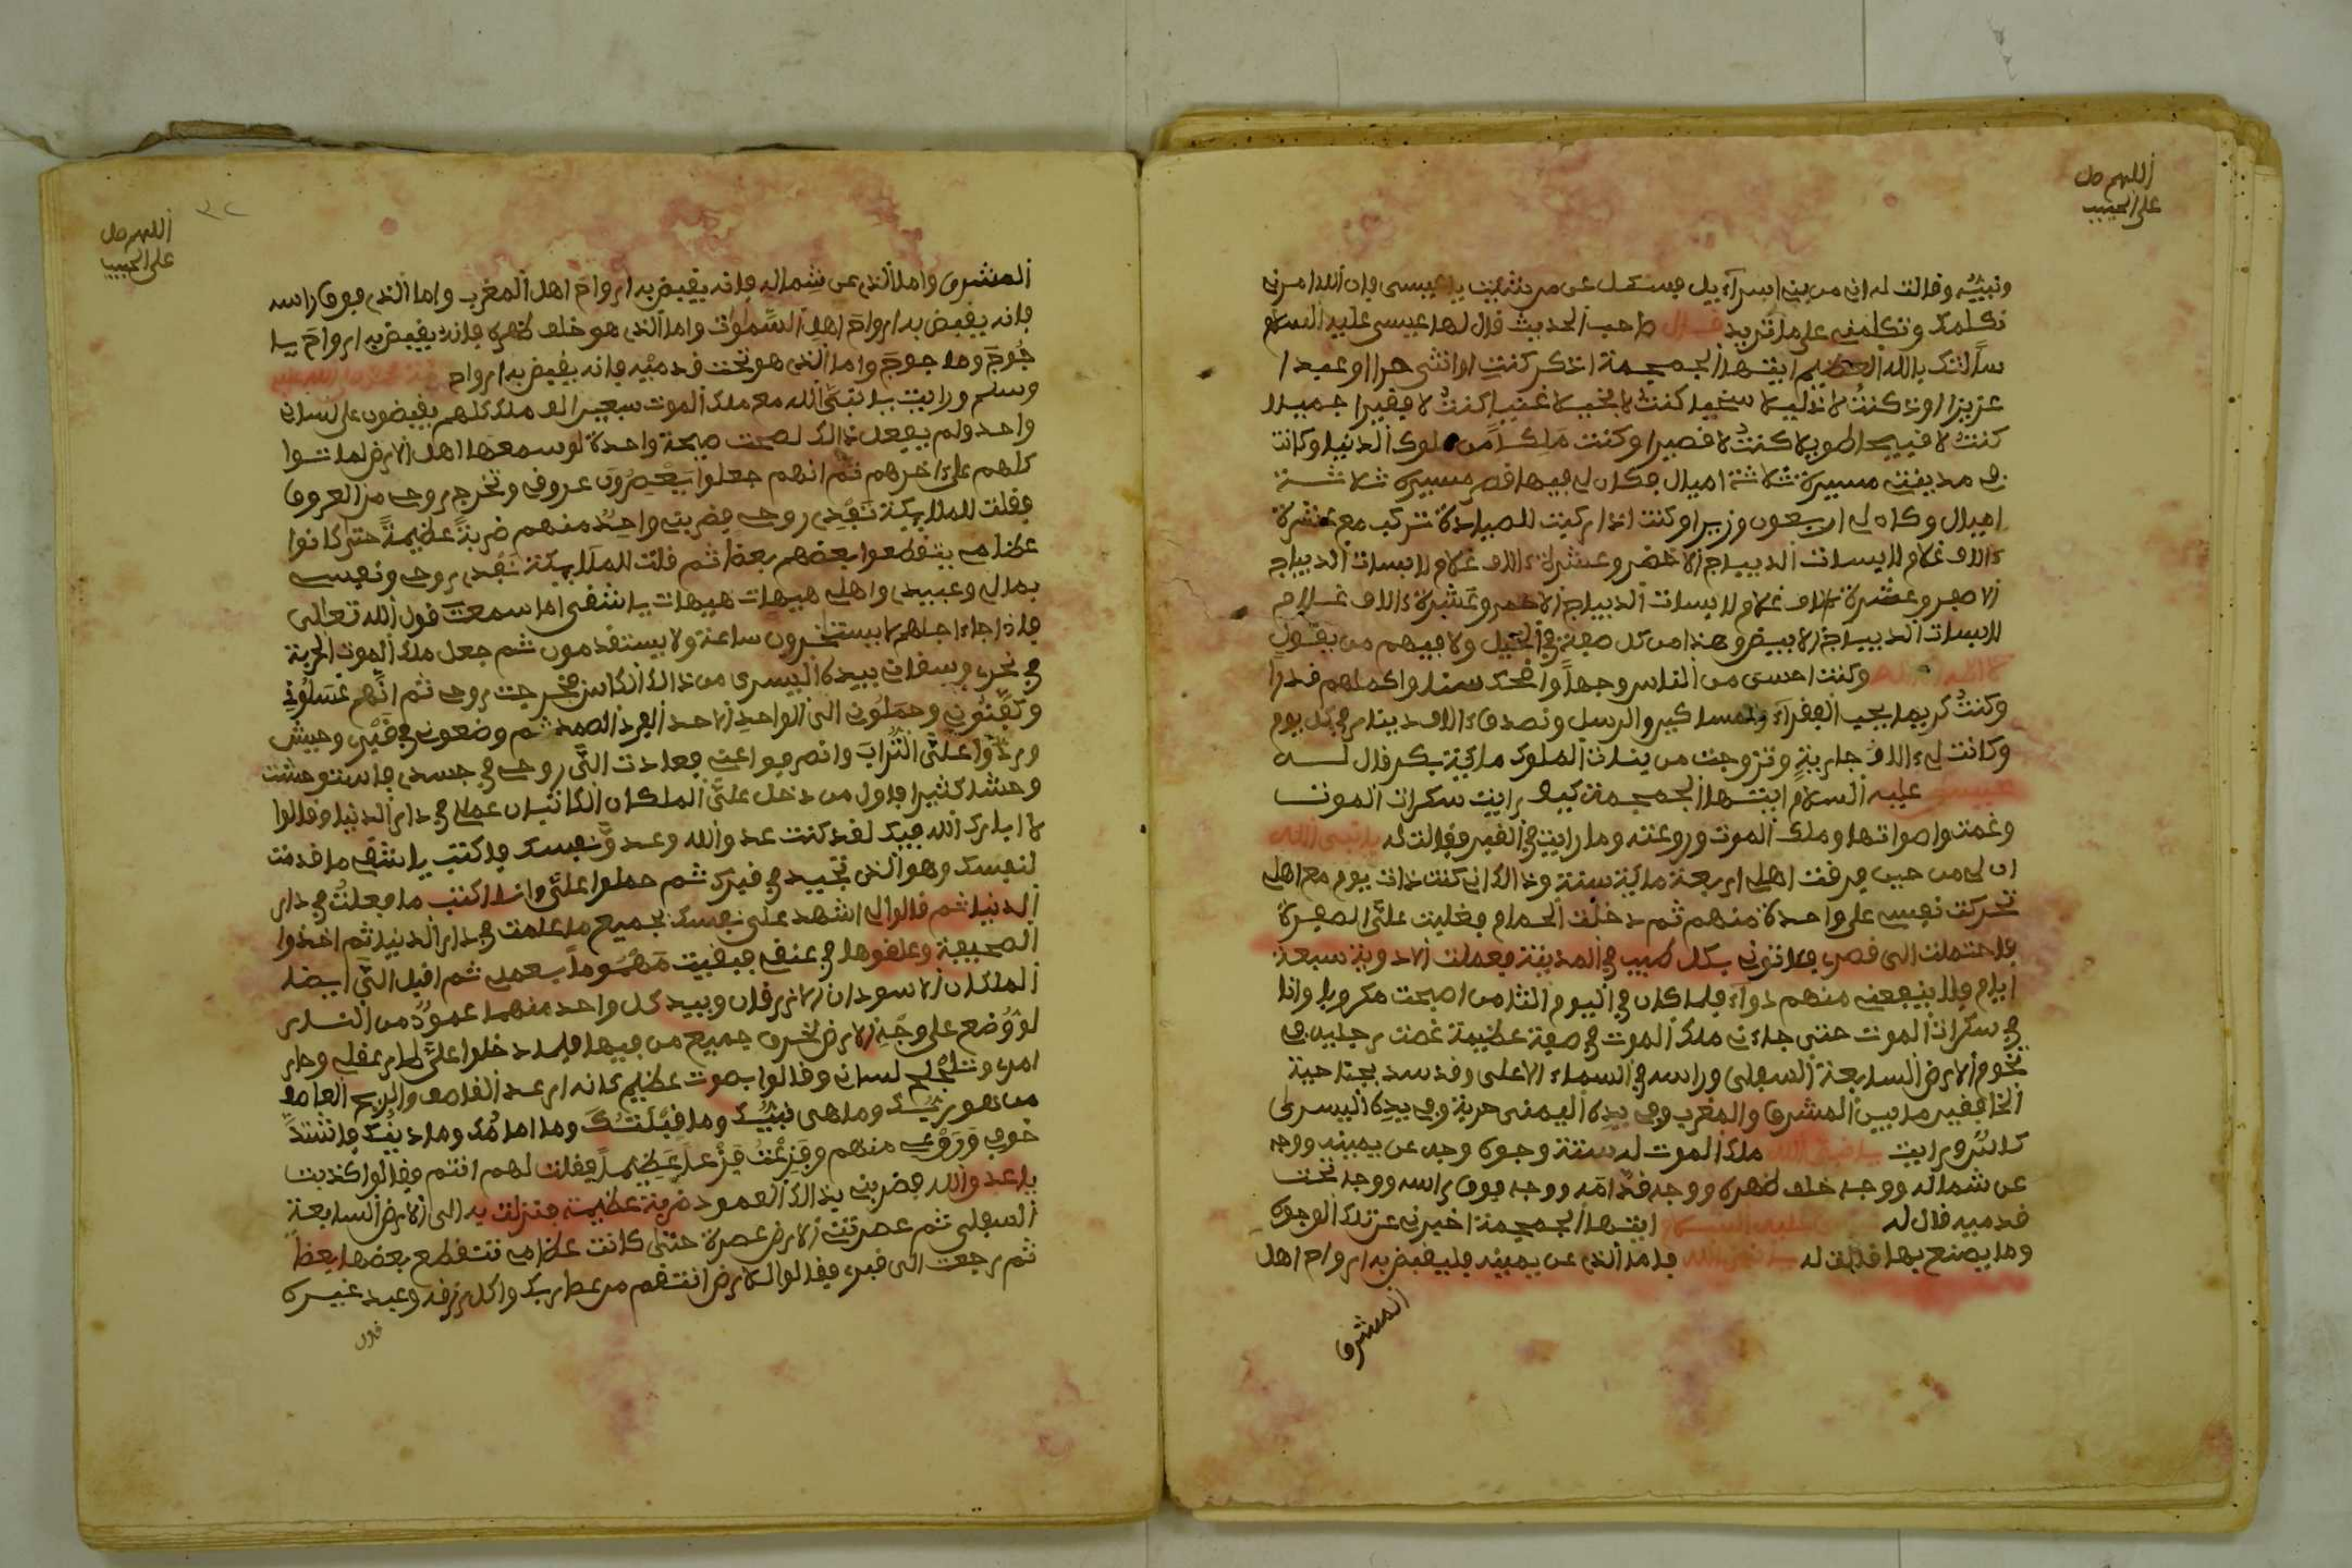 اللهم صل
على الحبيب
ونبيه وقالت له اني من بني اسرآءيل فسئل عن من شيت يا عيسى فان الله امرني
نكلمك وتكلمني على ما تريد قال صاحب الحديث قال لها عيسى عليه السلام
سألتك بالله العظيم ايتها الجمجمة اذكر كنت او انثى حرا او عبدا
عزيزا او كنت لا ذليلا سخيا كنت لا بخيلا غنيا كنت لا فقيرا جميلا
كنت لا قبيحا طويلا كنت لا قصيرا وكنت ملكا من ملوك الدنيا وكانت
لي مدينتي مسيرة ثلاثة اميال فكان لي فيها قصر مسيرة ثلاثة
اميال وكان لي اربعون وزيرا وكنت اذا ركبت للصيادة تركب مع عشرة
ءالاف غلام لابسات الديباج الاخضر وعشرة ءالاف غلام لابسات الديباج
الاصفر وعشرة ءالاف غلام لابسات الديباج الاحمر وعشرة ءالاف غلام
لابسات الديباج الابيض وهذا من كل صفة في الخيل ولا فيهم من يقول
لا اله الا الله وكنت احسن الناس وجها واضحك سنا واكملهم قدرا
وكنت كريما يحب الفقرآء والمساكين والرسل ونصدق ءالاف دينار في كل يوم
وكانت لي ءالاف جارية وتزوجت من بنات الملوك ماية بكر قال له
عيسى عليه السلام ايتها الجمجمة كيف رايت سكرات الموت
وغمت واصواتها وملك الموت وروعته وما رايت في القبر فقالت له يا نبي الله
ان لي من حين فرقت اهلي اربعة ماية سنة وذالك اني كنت ذات يوم مع اهلي
تحركت نفسي على واحدة منهم ثم دخلت الحمام فغلبت علي الصفرة
فاحتملت الى قصري فاتوني بكل طبيب في المدينة فعملت الادوية سبعة
ايام ولا ينفعني منهم دوآء فلما كان في اليوم الثامن اصبحت مكروبا وانا
في سكرات الموت حتى جاءني ملك الموت في صفة عظيمة غصت رجليه في
تخوم الارض السابعة السفلى وراسه في السماء الاعلى وقد سد بجناحيه
الخافقين ما بين المشرق والمغرب وفي يده اليمنى حربة وفي يده اليسرى
كاس ورايت يا نبي الله ملك الموت له ستة وجوه وجه عن يمينه ووجه
عن شماله ووجه خلف ظهره ووجه قدامه ووجه فوق راسه ووجه تحت
قدميه قال له عيسى عليه السلام ايتها الجمجمة اخبرني عن تلك الوجوه
وما يصنع بها قالت له يا نبي الله فاما الذي عن يمينه فليقبض به ارواح اهل
المشرق
اللهم صل
على الحبيب
٣٢
المشرق واما الذي عن شماله فانه يقبض به ارواح اهل المغرب واما الذي فوق راسه
فانه يقبض به ارواح اهل السموات واما الذي هو خلف ظهره فانه يقبض به ارواح يا
جوج وما جوج واما الذي هو تحت قدميه فانه يقبض به ارواح امة محمد صلى الله عليه
وسلم ورايت يا نبي الله مع ملك الموت سبعين الف ملك كلهم يقبضون على لساني
واحد ولم يفعل ذالك لصحت صيحة واحدة لو سمعها اهل الارض لماتوا
كلهم على ءاخرهم ثم انهم جعلوا يعصرون عروفي وتخرج روحي من العروق
فقلت للملايكة نفدي روحي فضربني واحد منهم ضربة عظيمة حتى كانوا
عظامي يتقطعوا بعضهم بعظا ثم قلت للملايكة نفدي روحي ونفسي
بمالي وعبيدي واهلي هيهات هيهات يا شقي اما سمعت قول الله تعالى
فاذا جاء اجلهم لا يستخرون ساعة ولا يستقدمون ثم جعل ملك الموت الحربة
في نحري وسقاني بيده اليسرى من ذالك الكاس فخرجت روحي ثم انهم غسلوني
وكفنوني وحملوني الى الواحد الاحد الفرد الصمد ثم وضعوني في قبري وحبيش
وردوا علي التراب وانصرفوا عني فعادت الي روحي في جسدي فاستوحشت
وحشا كثيرا فاول من دخل علي الملكان الكاتبان عملي في دار الدنيا وقالوا
لا ابارك الله فيك لقد كنت عدو الله وعدو نفسك فاكتب يا شقي ما قدمت
لنفسك وهو الذي تجيد في قبرك ثم حملوا علي وانا اكتب ما فعلت في دار
الدنيا ثم قالوا لي اشهد على نفسك بجميع ما علمت في دار الدنيا ثم اخذوا
الصحيفة وعلقوها في عنقي فبقيت مهموما بعملي ثم اقبل الي ايضا
الملكان الاسودان الازرقان وبيد كل واحد منهما عمود من النار
لو وضع على وجه الارض لحرق جميع من فيها فلما دخلوا علي طار عقلي وحار
امري وتلجلج لساني وقالوا بصوت عظيم كانه ارعد القاصف والريح العاصف
من هو ربك وما هي نبيك وما قبلتك وما امامك وما دينك فاشتد
خوفي وروعي منهم وفزعت فزعا عظيما فقلت لهم انتم فقالوا كذبت
يا عدو الله فضربني بذالك العمود ضربة عظيمة فنزلت به الى الارض السابعة
السفلى ثم عصرتني الارض عصرة حتى كانت عظامي تتقطع بعضها بعظا
ثم رجعت الى قبري فقالوا للارض انتقم من عطا ربك واكل رزقه وعبد غيره